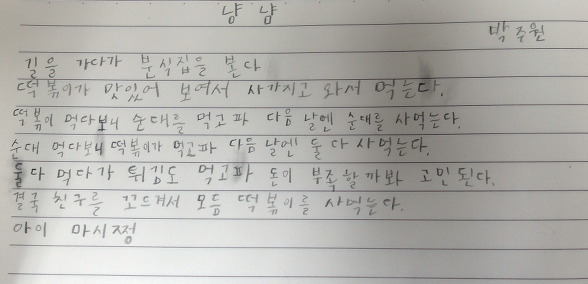 냠 냠
박주원
길을 가다가 분식집을 본다
떡볶이가 맛있어 보여서 사가지고 와서 먹는다.
떡볶이 먹다보니 순대를 먹고파 다음 날엔 순대를 사먹는다.
순대 먹다보니 떡볶이가 먹고파 다음 날엔 둘 다 사먹는다.
둘 다 먹다가 튀김도 먹고파 돈이 부족할까봐 고민된다.
결국 친구를 꼬드겨서 모듬 떡볶이를 사먹는다.
아이 마시쪙